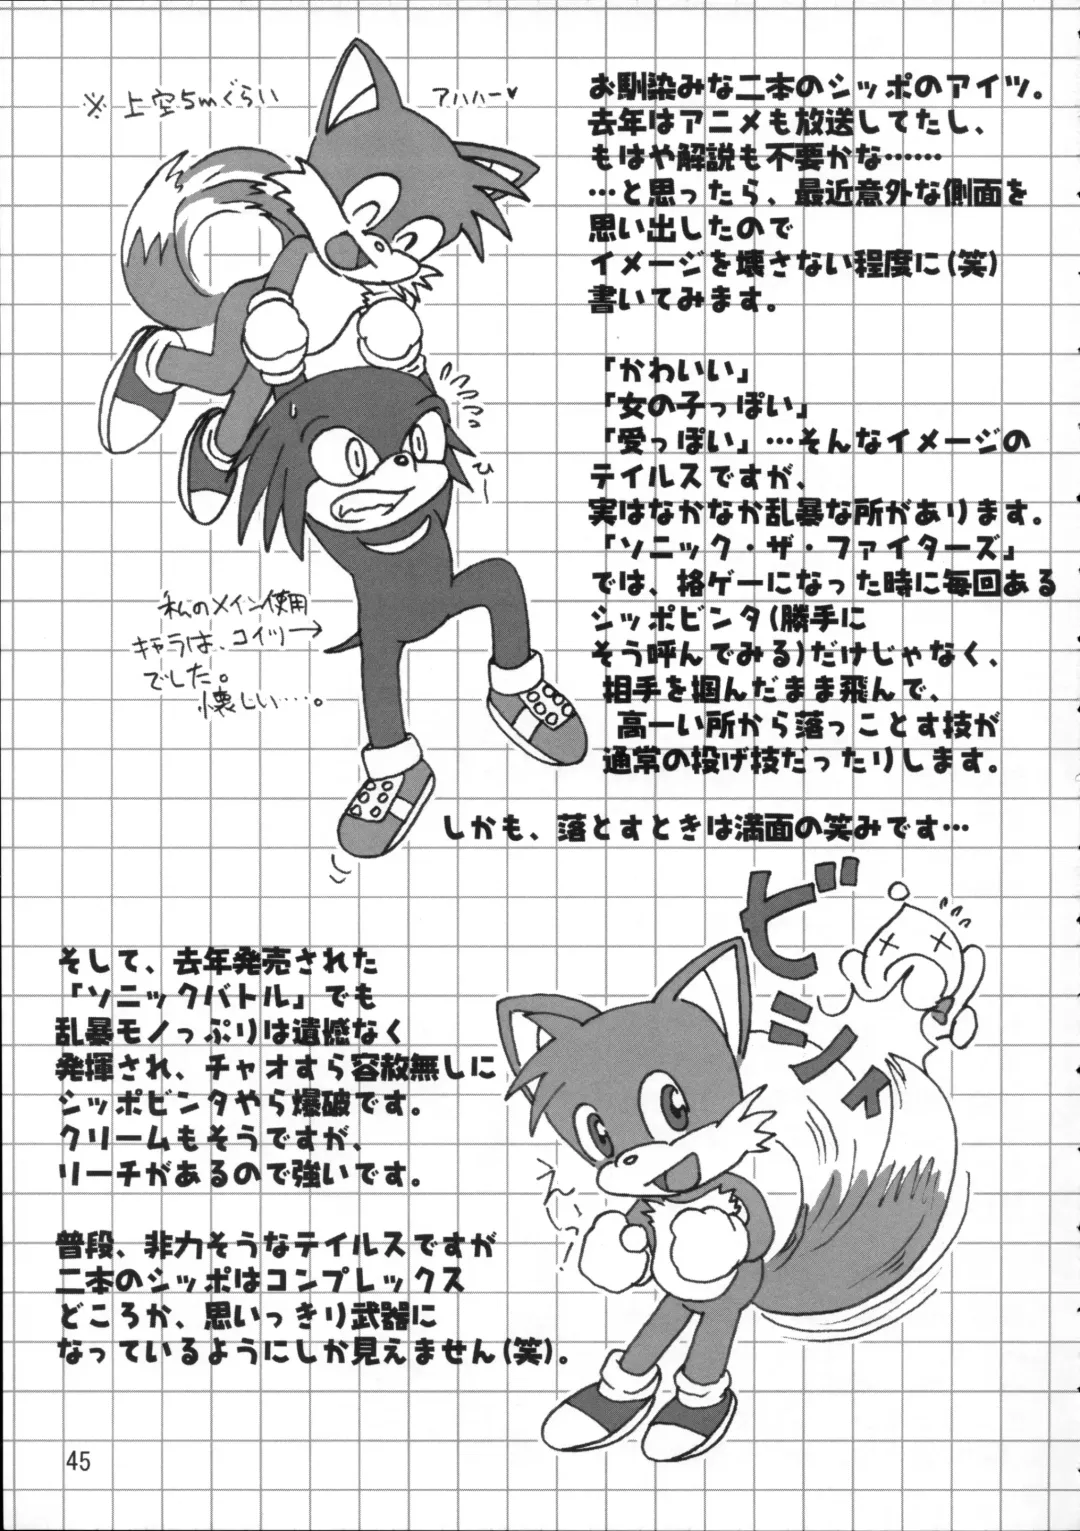 ※上空5mぐらい
アハハー♥
お馴染みな二本のシッポのアイツ。
去年はアニメも放送してたし、
もはや解説も不要かな……
…と思ったら、最近意外な側面を
思い出したので
イメージを壊さない程度に(笑)
書いてみます。
「かわいい」
「女の子っぽい」
「愛っぽい」…そんなイメージの
テイルスですが、
実はなかなか乱暴な所があります。
「ソニック・ザ・ファイターズ」
では、格ゲーになった時に毎回ある
シッポビンタ(勝手に
そう呼んでみる)だけじゃなく、
相手を掴んだまま飛んで、
高ーい所から落っことす技が
通常の投げ技だったりします。
しかも、落とすときは満面の笑みです…
ひー
私のメイン使用
キャラは、コイツ→
でした。
懐しい…。
ビンッ
そして、去年発売された
「ソニックバトル」でも
乱暴モノっぷりは遺憾なく
発揮され、チャオすら容赦無しに
シッポビンタやら爆破です。
クリームもそうですが、
リーチがあるので強いです。
普段、非力そうなテイルスですが
二本のシッポはコンプレックス
どころか、思いっきり武器に
なっているようにしか見えません(笑)。
45